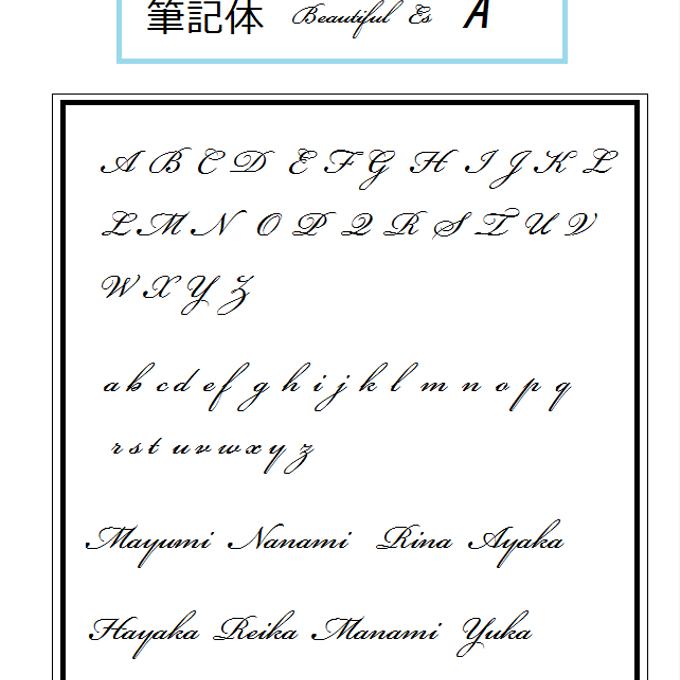 筆記体 Beautiful Es A
A B C D E F G H I J K L
L M N O P Q R S T U V
W X Y Z
a b c d e f g h i j k l m n o p q
r s t u v w x y z
Mayumi Nanami Rina Ayaka
Hayaka Reika Manami Yuka